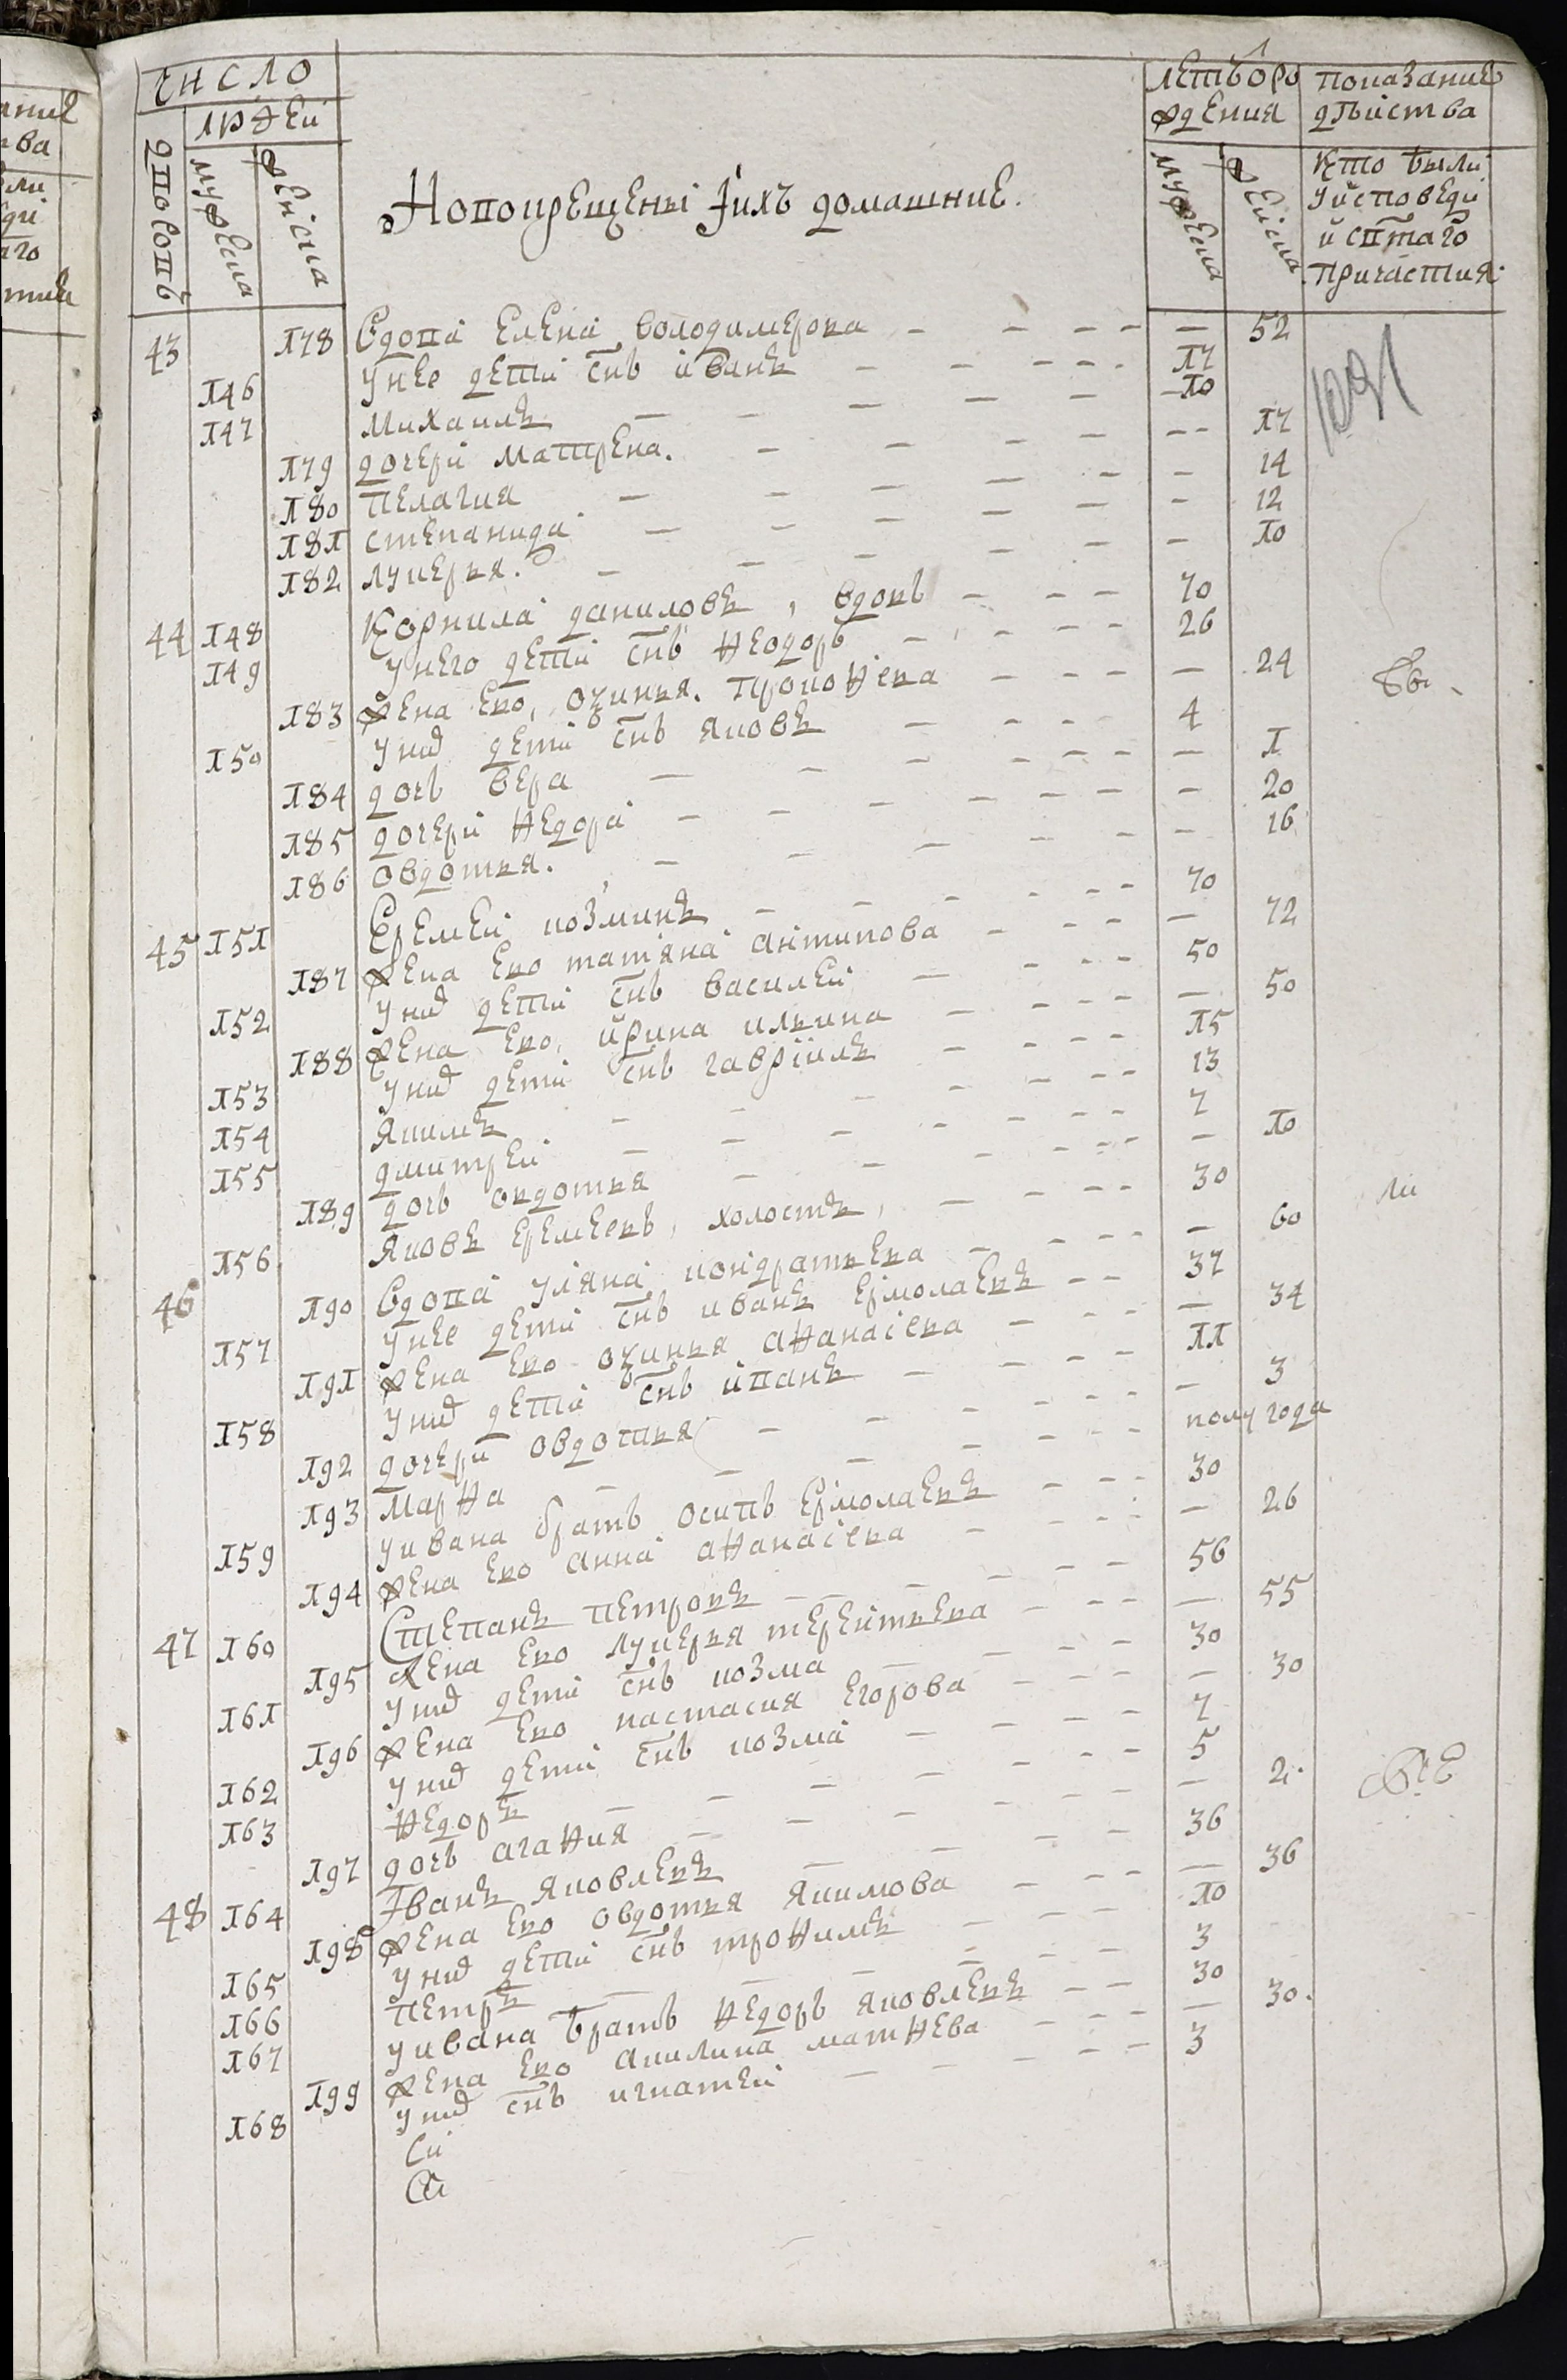 число
людей
дворовъ
мужеска
женска
Новокрещены і ихъ домашние.
летъ ѿ ро
ждения
мужеска
женска
показание
действа
Кто были
у исповеди
и свтаго
причастия.
43 178 Вдова Елена володимерова - - - - - 52
146 у нее дети снъ иванъ - - - - - 17
147 Михаилъ - - - - - 10
179 дочери матрена. - - - - - 17
180 пелагия - - - - - 14
181 степанида - - - - - 12
182 лукерья. - - - - - 10
44 148 Корнила даниловъ, вдовъ - - - 70
149 у него дети снъ Ѳеодоръ - - - - 26
183 жена ево, Прокоѳева - - - - 24
150 у них дети снъ яковъ - - - - 4
184 дочь вера - - - - - 1
185 дочери Ѳедора - - - - - 20
186 овдотья. - - - - - 16
45 151 Еремей козминъ - - - - - 70
187 жена ево татіяна антипова - - - - 72
152 у них дети снъ василей - - - - 50
188 жена ево, ирина ильина - - - - 50
153 у них дети снъ гавріилъ - - - - 15
154 якимъ - - - - - 13
155 дмитрей - - - - - 7
189 дочь овдотья - - - - - 10
156 яковъ еремеевъ, холостъ, - - - - 30
46 190 Вдова уліяна кондратьева - - - - 60
157 у нее дети снъ иванъ Ермолаевъ - - 37
191 жена ево аѳанасіева - - - - 34
158 у них дети снъ иванъ - - - - 11
192 дочери овдотья - - - - - 3
193 марѳа - - - - - полугода
159 у ивана братъ осипъ Ермолаевъ - - - 30
194 жена ево анна аѳанасіева - - - - 26
47 160 Степанъ петровъ - - - - - 56
195 жена ево лукерья терентьева - - - - 55
161 у них дети снъ козма - - - - 30
196 жена ево настасия Егорова - - - - 30
162 у них дети снъ козма - - - - 7
163 Ѳедоръ - - - - - 5
197 дочь агаѳия - - - - - 2.
48 164 Іванъ яковлевъ - - - - 36
198 жена ево овдотья якимова - - - - 36
165 у них дети снъ троѳимъ - - - - 10
166 петръ - - - - - 3
167 у ивана братъ Ѳедоръ яковлевъ - - 30
199 жена ево акилина матѳева - - - - 30.
168 у них снъ игнатей - - - - - 3
бы
ли
все